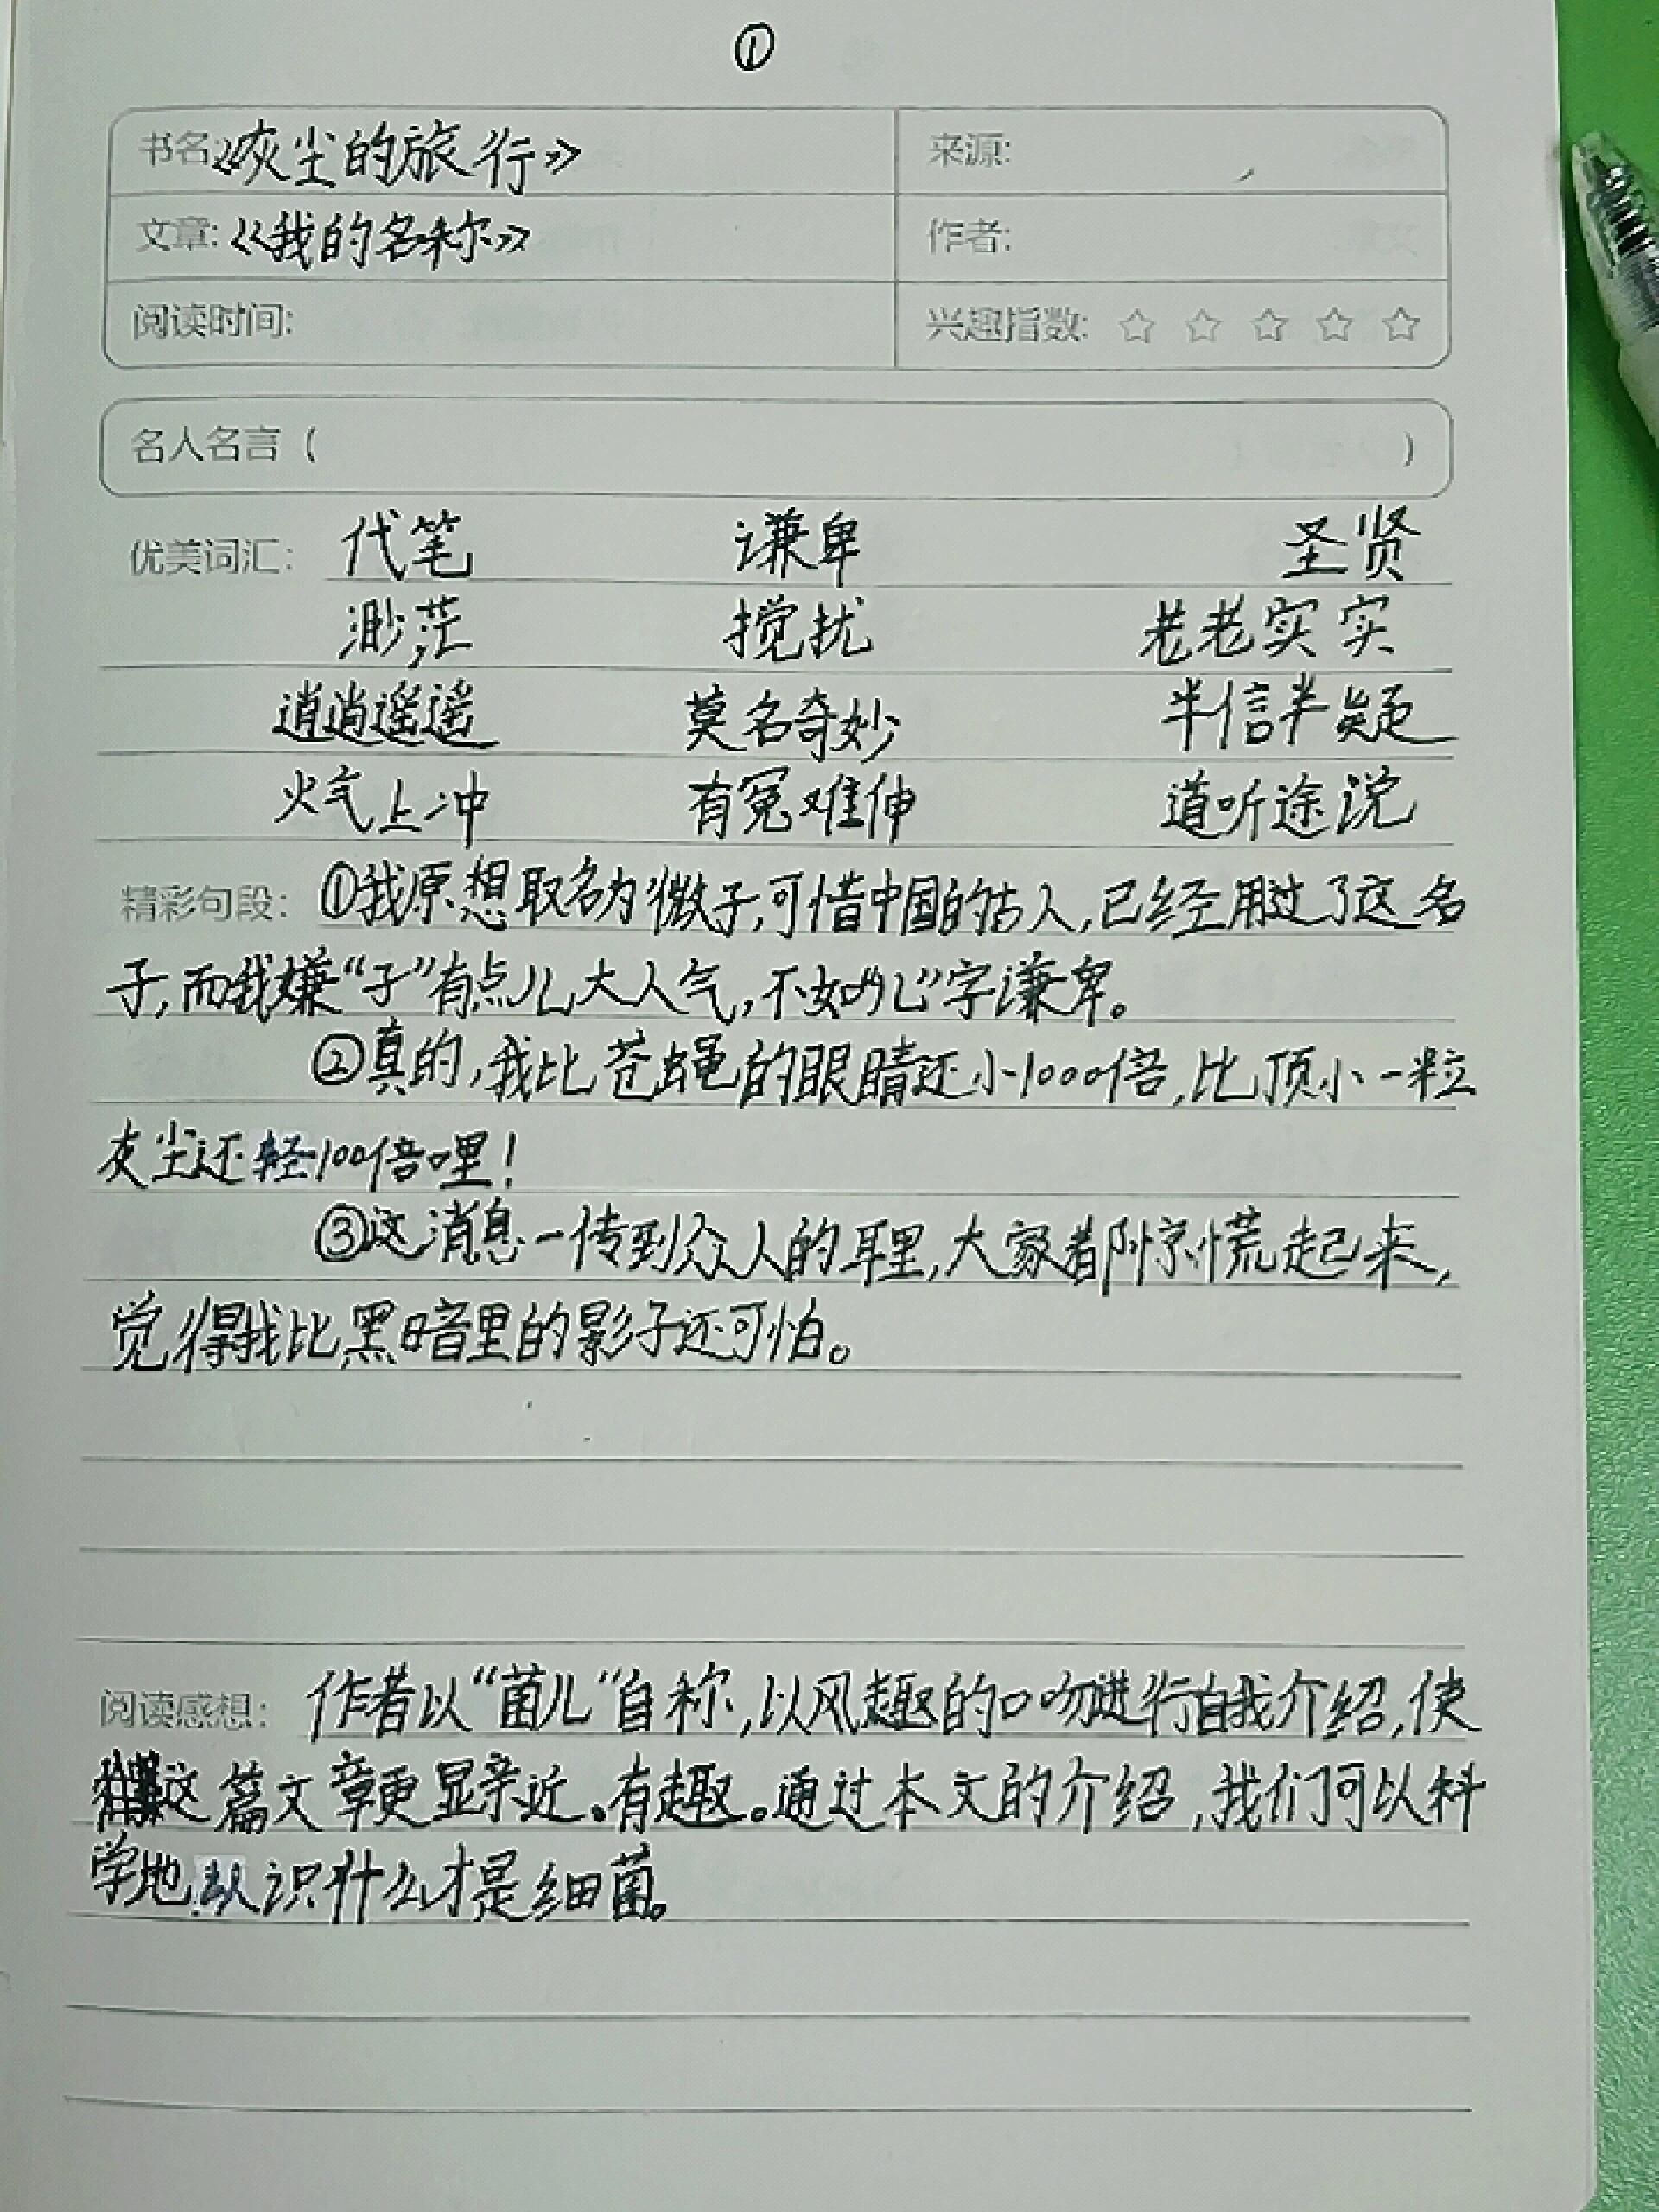 ①
书名:《灰尘的旅行》 来源:
文章:《我的名称》 作者:
阅读时间: 兴趣指数: ☆ ☆ ☆ ☆ ☆
名人名言（ ）
优美词汇: 代笔 谦卑 圣贤
渺茫 搅扰 老老实实
逍逍遥遥 莫名奇妙 半信半疑
火气上冲 有冤难伸 道听途说
精彩句段: ①我原想取名为微子,可惜中国的古人,已经用过了这名
子,而我嫌“子”有点儿大人气,不如“儿”字谦卑。
②真的,我比苍蝇的眼睛还小1000倍,比顶小一粒
灰尘还轻100倍哩!
③这消息一传到众人的耳里,大家都惊慌起来,
觉得我比黑暗里的影子还可怕。
阅读感想: 作者以“菌儿“自称,以风趣的口吻进行自我介绍,使
这篇文章更显亲近。有趣。通过本文的介绍,我们可以科
学地认识什么才是细菌。